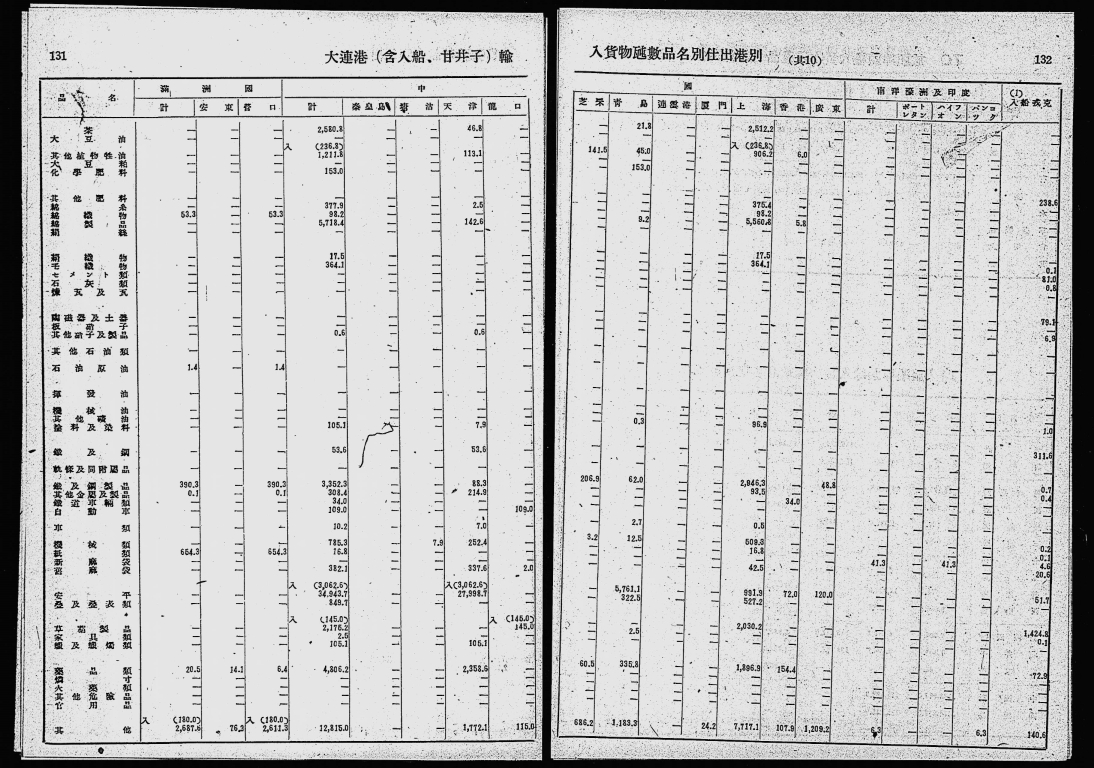 131
大連港（含入船、甘井子）輸
滿洲國 中
品名 計 安東 營口 計 秦皇島 塘沽 天津 龍口
茶 — — — 2,580.8 — — 46.8 —
大豆油 — — — 入 (236.8)
其他植物性油 — — — 1,211.8 — — 113.1 —
大豆粕 — — — — — — — —
化學肥料 — — — 153.0 — — — —
其他肥料 — — — — — — — —
綿糸 — — — 377.9 — — 2.5 —
綿織物 53.3 — 53.3 98.2 — — — —
綿製品 — — — 5,718.4 — — 142.6 —
絹織物 — — — 17.5 — — — —
毛織物 — — — 364.1 — — — —
セメント類 — — — — — — — —
石灰類 — — — — — — — —
煉瓦及瓦 — — — — — — — —
陶磁器及土器 — — — — — — — —
板硝子 — — — — — — — —
其他硝子及製品 — — — 0.6 — — 0.6 —
其他石油類 — — — — — — — —
石油原油 1.4 — 1.4 — — — — —
揮發油 — — — — — — — —
機械油 — — — — — — — —
其他礦油 — — — — — — — —
塗料及染料 — — — 105.1 — — 7.9 —
鐵及鋼 — — — 53.6 — — 53.6 —
軌條及同附屬品 — — — — — — — —
鐵及鋼製品 390.3 — 390.3 3,352.3 — — 88.3 —
其他金屬及製品 0.1 — 0.1 308.4 — — 214.9 —
鐵道車輛類 — — — 34.0 — — — —
自動車 — — — 109.0 — — — 109.0
車類 — — — 10.2 — — 7.0 —
機械類 — — — 785.3 — 7.9 252.4 —
紙類 654.3 — 654.3 16.8 — — — —
新麻袋 — — — — — — — —
舊麻袋 — — — 382.1 — — 337.6 2.0
入 (3,062.6) 入(3,062.6)
安平 — — — 34,943.7 — — 27,998.7 —
疊及疊表類 — — — 849.7 — — — —
入 (145.0) 入 (145.0)
草蓆製品 — — — 2,175.2 — — — 145.0
家具類 — — — 2.5 — — — —
蠟及蠟燭類 — — — 105.1 — — 105.1 —
藥品類 20.5 14.1 6.4 4,806.2 — — 2,358.6 —
燐寸 — — — — — — — —
火藥類 — — — — — — — —
其他危險品 — — — — — — — —
官用品 — — — — — — — —
入 (180.0) 入 (180.0)
其他 2,687.6 76.3 2,611.3 12,815.0 — — 1,772.1 115.0
入貨物噸數品名別仕出港別 （共10）
132
國 南洋濠洲及印度 (J)
芝罘 青島 連雲港 厦門 上海 香港 廣東 計 ポートレタン ハイフォン バンコツク 入船或克
— 21.8 — — 2,512.2 — — — — — — —
入 (236.8)
141.5 45.0 — — 906.2 6.0 — — — — — —
— 153.0 — — — — — — — — — —
— — — — 375.4 — — — — — — 238.6
— — — — 98.2 — — — — — — —
— 9.2 — — 5,560.8 5.8 — — — — — —
— — — — 17.5 — — — — — — —
— — — — 364.1 — — — — — — —
0.1
81.0
0.8
79.1
6.9
— 0.3 — — 96.9 — — — — — — 1.0
311.6
206.9 62.0 — — 2,946.3 — 48.8 — — — — 0.7
— — — — 93.5 — — — — — — 0.4
— — — — — 34.0 — — — — — —
— 2.7 — — 0.5 — — — — — — —
3.2 12.5 — — 509.3 — — — — — — 0.2
— — — — 16.8 — — — — — — 0.1
41.3 — 41.3 — 4.6
— — — — 42.5 — — — — — — 20.6
— 5,761.1 — — 991.9 72.0 120.0 — — — — 51.7
— 322.5 — — 527.2 — — — — — — —
— — — — 2,030.2 — — — — — — 1,424.8
— 2.5 — — — — — — — — — 0.1
60.5 335.8 — — 1,896.9 154.4 — — — — — 72.9
686.2 1,183.3 — 24.2 7,717.1 107.9 1,209.2 6.3 — — 6.3 140.6